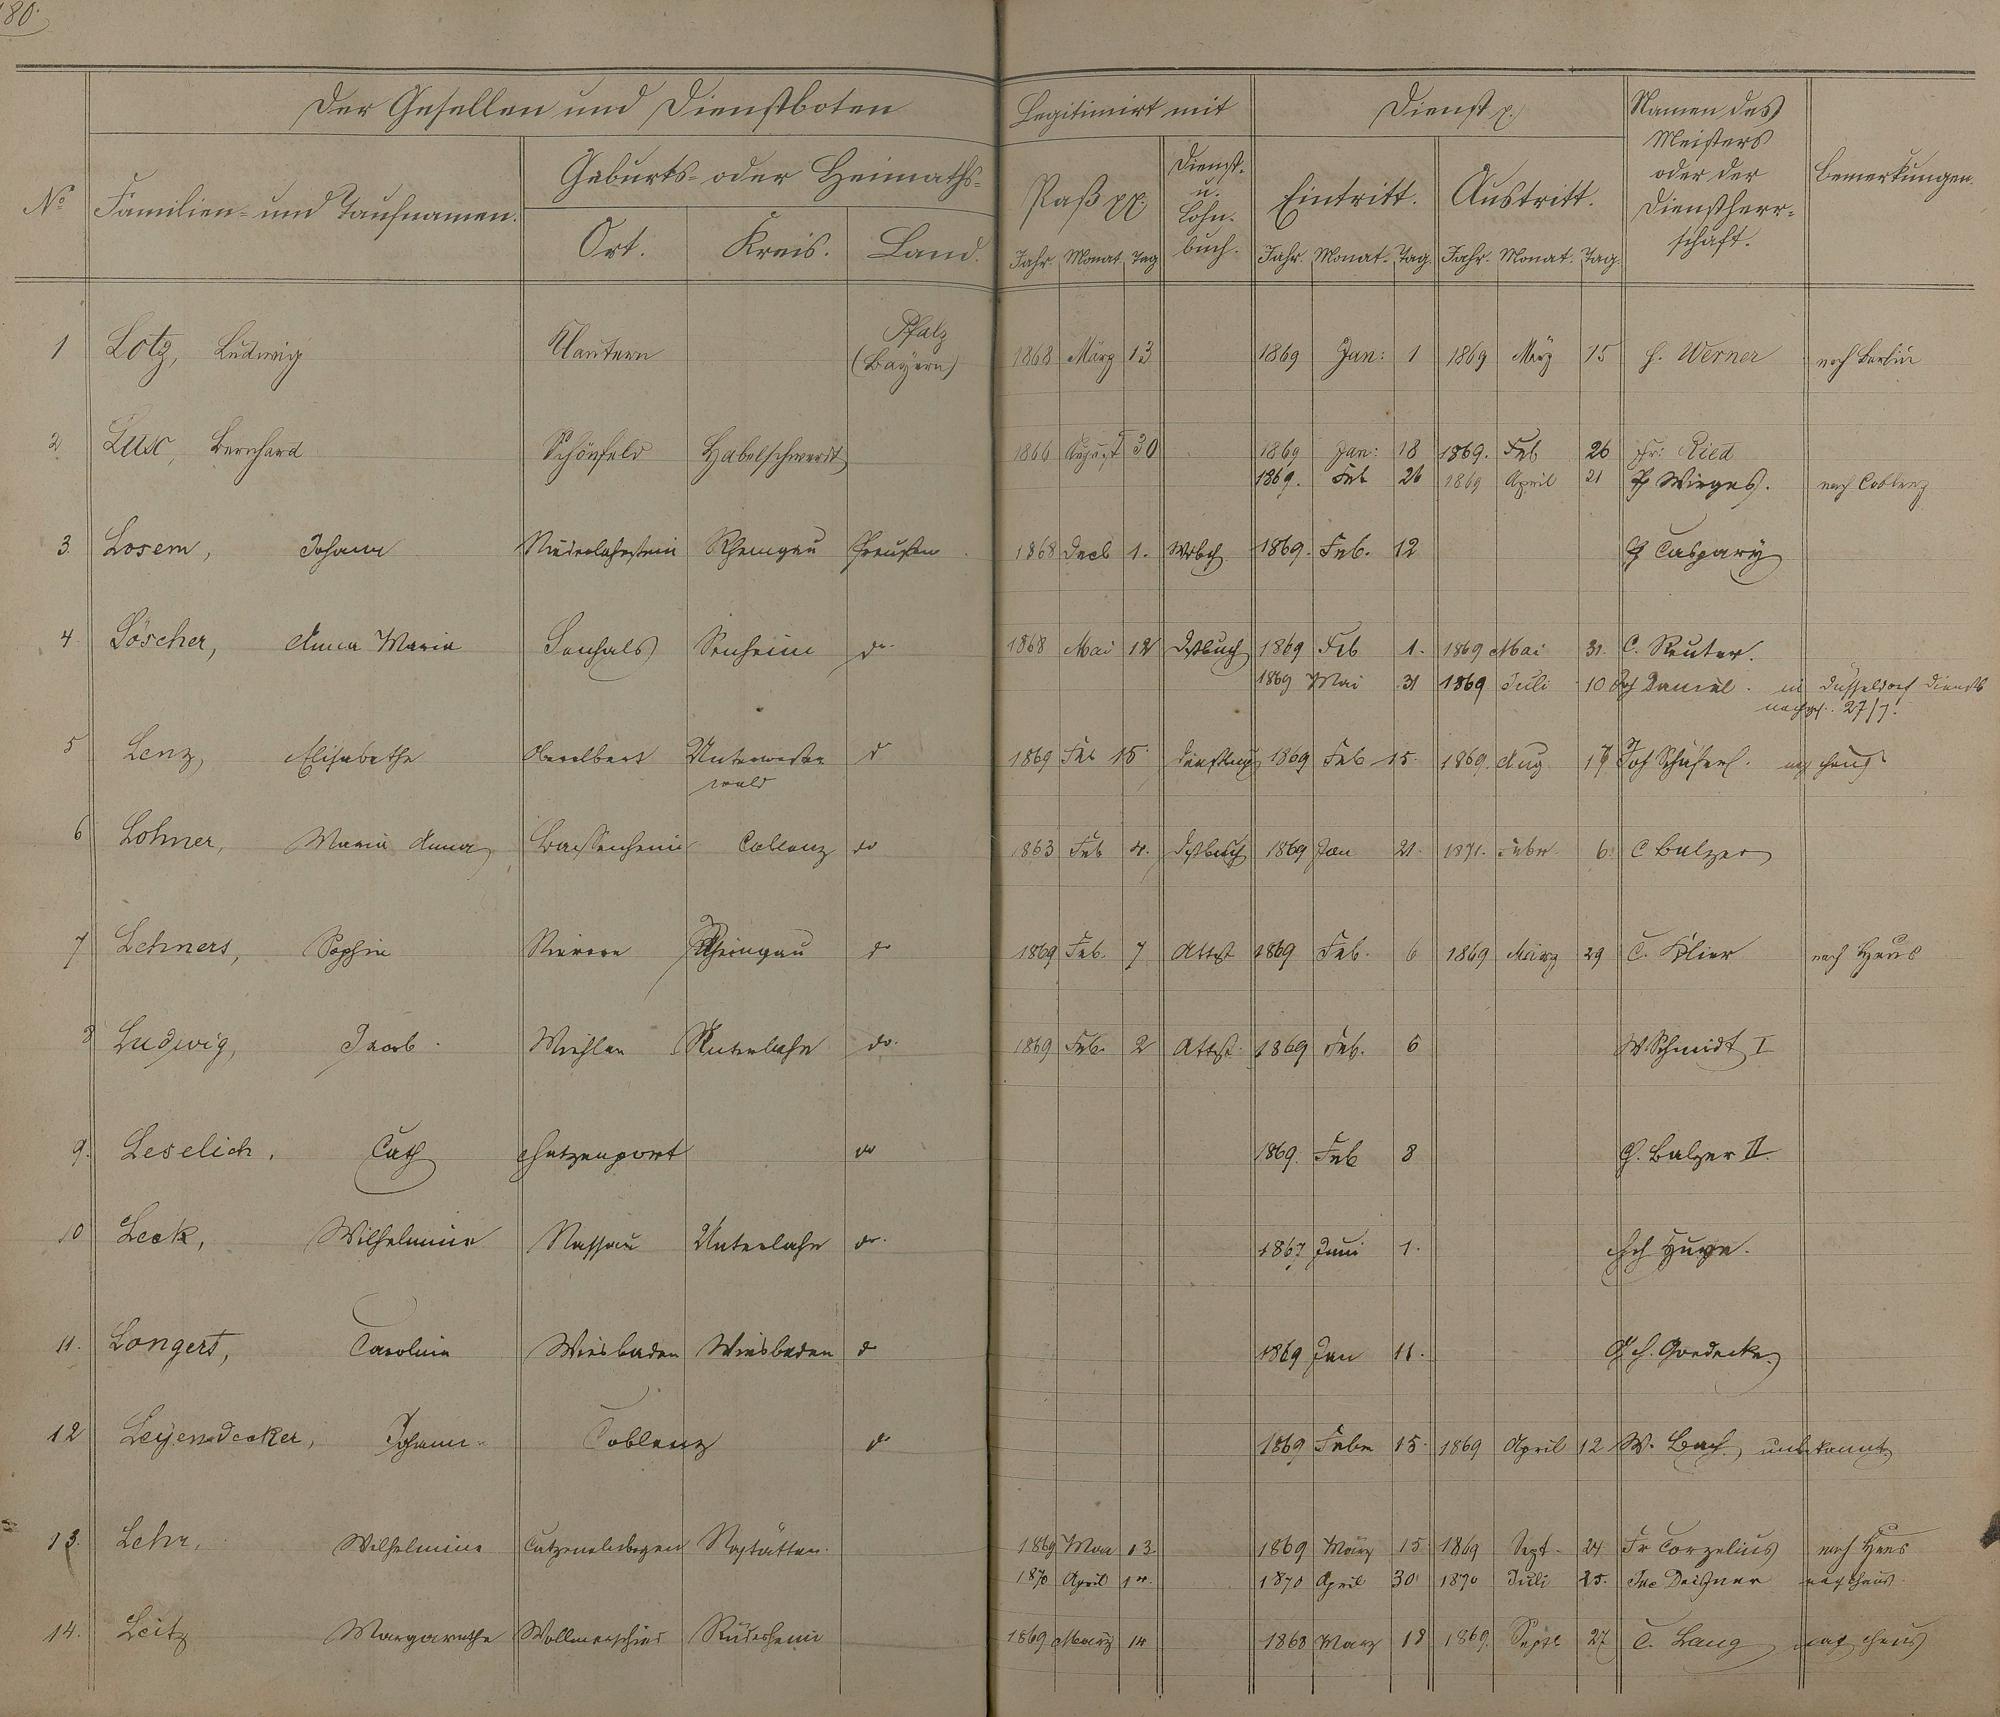 180.
Der Gesellen und Dienstboten
Legitimirt mit
Dienst p.
Namen des Meisters oder der Dienstherrschaft.
Bemerkungen.
No
Familien- und Taufnamen.
Geburts- oder Heimaths-
Ort. Kreis. Land.
Paß pp.
Dienst- u. Lohn-buch.
Eintritt. Austritt.
Jahr. Monat. Tag Jahr. Monat. Tag. Jahr. Monat. Tag.
1 Lotz, Ludwig Klautern Pfalz (Bayern) 1868 März 13 1869 Jan: 1 1869 März 15 H. Werner nach Berlin
2 Lux, Bernhard Schönfeld Habelschwerdt 1866 August 30 1869 Jan: 18 1869. Feb 26 Fr: Ried
1869. Feb 26 1869 April 21 P Wirges. nach Coblenz
3. Losem, Johann Niederlahnstein Rheingau Preußen 1868 Decb 1. 1869. Feb. 12 Caspary
4. Löscher, Anna Maria Senhals Senheim do 1868 Mai 12 Dstbuch 1869 Feb 1. 1869 Mai 31. C. Reuter.
1869 Mai 31 1869 Juli 10 Daniel. in Düsseldorf Dienst
nachgs. 27/7.
5 Lenz, Elisabetha Oberelbert Unterwesterwald do 1869 Feb 15 Dienstbuch 1869 Feb 15. 1869. Aug 17 Joh Schäfer. nach Haus
6 Lohner, Maria Anna Bassenheim Coblenz do 1863 Feb 4. Dstbuch 1869 Jan 21. 1871. Febr 6. C Balzer
7 Lehners, Sophie Nievern Rheingau do 1869 Feb. 7 Attest 1869 Feb. 6 1869 März 29 C. Klier nach Haus
8 Ludwig, Jacob. Miehlen Unterlahn do. 1869 Feb. 2 Attest. 1869 Feb. 6 W Schmidt I
9. Leselich, Cath Hatzenport do 1869. Feb 8 Balzer II.
10 Leck, Wilhelmine Nassau Unterlahn do. 1867 Juni 1.
11. Longert, Caroline Wiesbaden Wiesbaden do 1869 Jan 11. Goedecke.
12 Leyendecker, Johann Coblenz do 1869 Febr 15. 1869 April 12 W. Bach, unbekannt
13. Lehr, Wilhelmine Catzenelnbogen Nastätten. 1869 13. 1869 März 15 1869 Sept. 24 Fr Corzelius nach Haus
1870 April 14. 1870 April 30 1870 Juli 25. nach Haus.
14. Leitz Margarethe Wollmerschied Rüdesheim 1869 März 14 1868 März 18 1869. Septe 27 C. Lang nach Haus